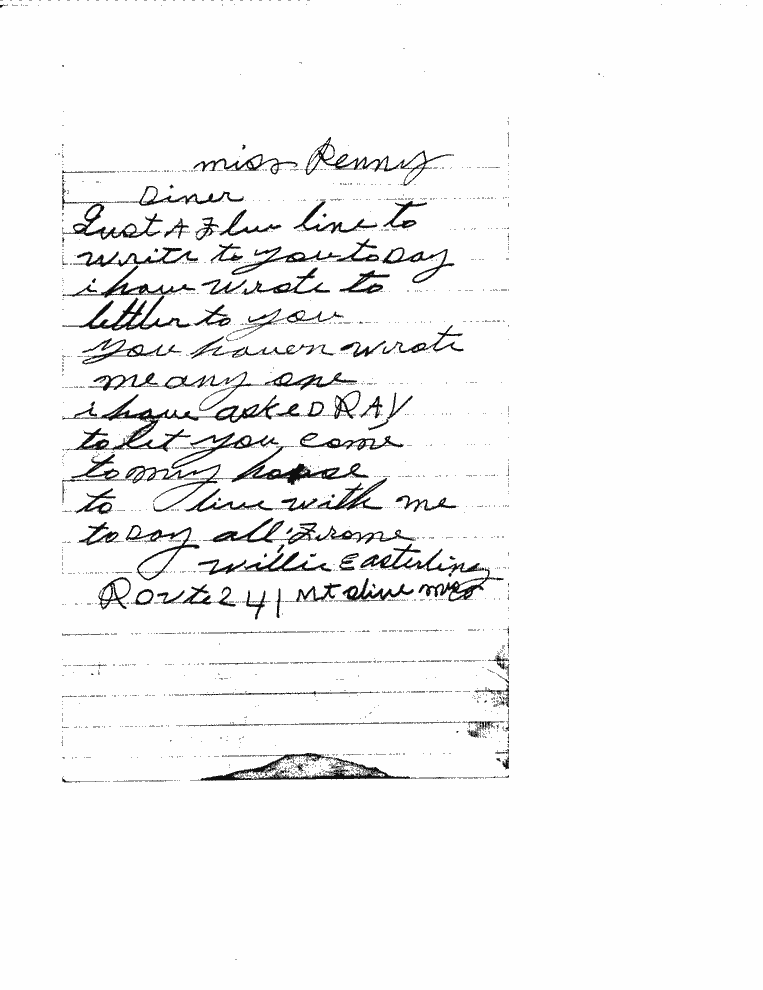 miss Renny
Diner
Just A Flew line to
write to you toDay
i have wrote to
letter to you
you haven wrote
me any one
i have askeD RAY
to let you come
to my house
to live with me
toDay all Frome
willie Easterling
Route 2 41 Mt olive miss